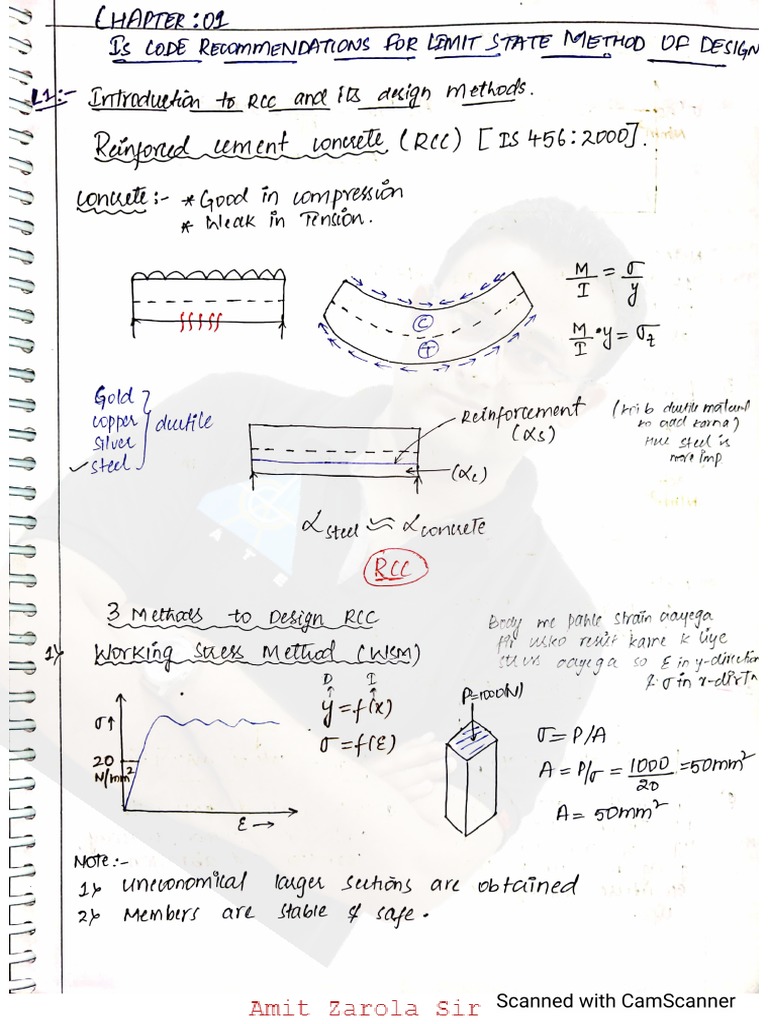 CHAPTER:01
IS CODE RECOMMENDATIONS FOR LIMIT STATE METHOD OF DESIGN
L1:- Introduction to RCC and its design Methods.
Reinforced cement concrete (RCC) [IS 456:2000].
concrete:- * Good in compression
* Weak in Tension.
M/I = σ/y
M/I • y = σz
C
T
Gold
copper
silver
✓ steel
ductile
Reinforcement
(αs)
(αc)
(koi b ductile material
ko add karna)
steel is
more imp
α steel ≈ α concrete
RCC
3 Methods to Design RCC
1) Working Stress Method (WSM)
Body me pahle strain aayega
fir usko resist karne k liye
stress aayega so ε in y-direction
& σ in x-dirtn
D I
y = f(x)
σ = f(ε)
σ↑
20
N/mm²
ε →
P=1000(N)
σ = P/A
A = P/σ = 1000/20 = 50mm²
A = 50mm²
Note:-
1) Uneconomical larger sections are obtained
2) Members are stable & safe.
ATE
Amit Zarola Sir
Scanned with CamScanner